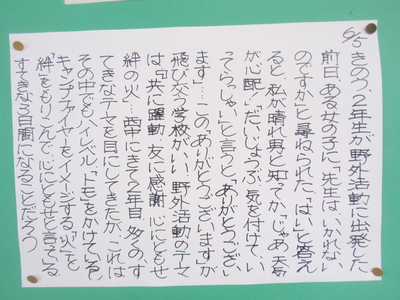 6/5 きのう、2年生が野外活動に出発した
前日、ある女の子に「先生は、いかれない
のですか」と尋ねられた。「はい」と答え
ると、私が晴れ男と知ってか、「じゃあ天気
が心配」、「だいじょうぶ、気を付けて、い
ってらっしゃい」と言うと、「ありがとうござい
ます」…この「ありがとうございます」が
飛び交う学校がいい。野外活動のテーマ
は『共に躍動 友に感謝 心にともせ
絆の火』…西中にきて2年目、多くの、す
てきなテーマを目にしてきたが、これは
その中でもハイレベル、「トモ」をかけている、
キャンプファイヤーをイメージする「火」を
「絆」をもりこんで、心にともせと言っている
すてきな3日間になることだろう